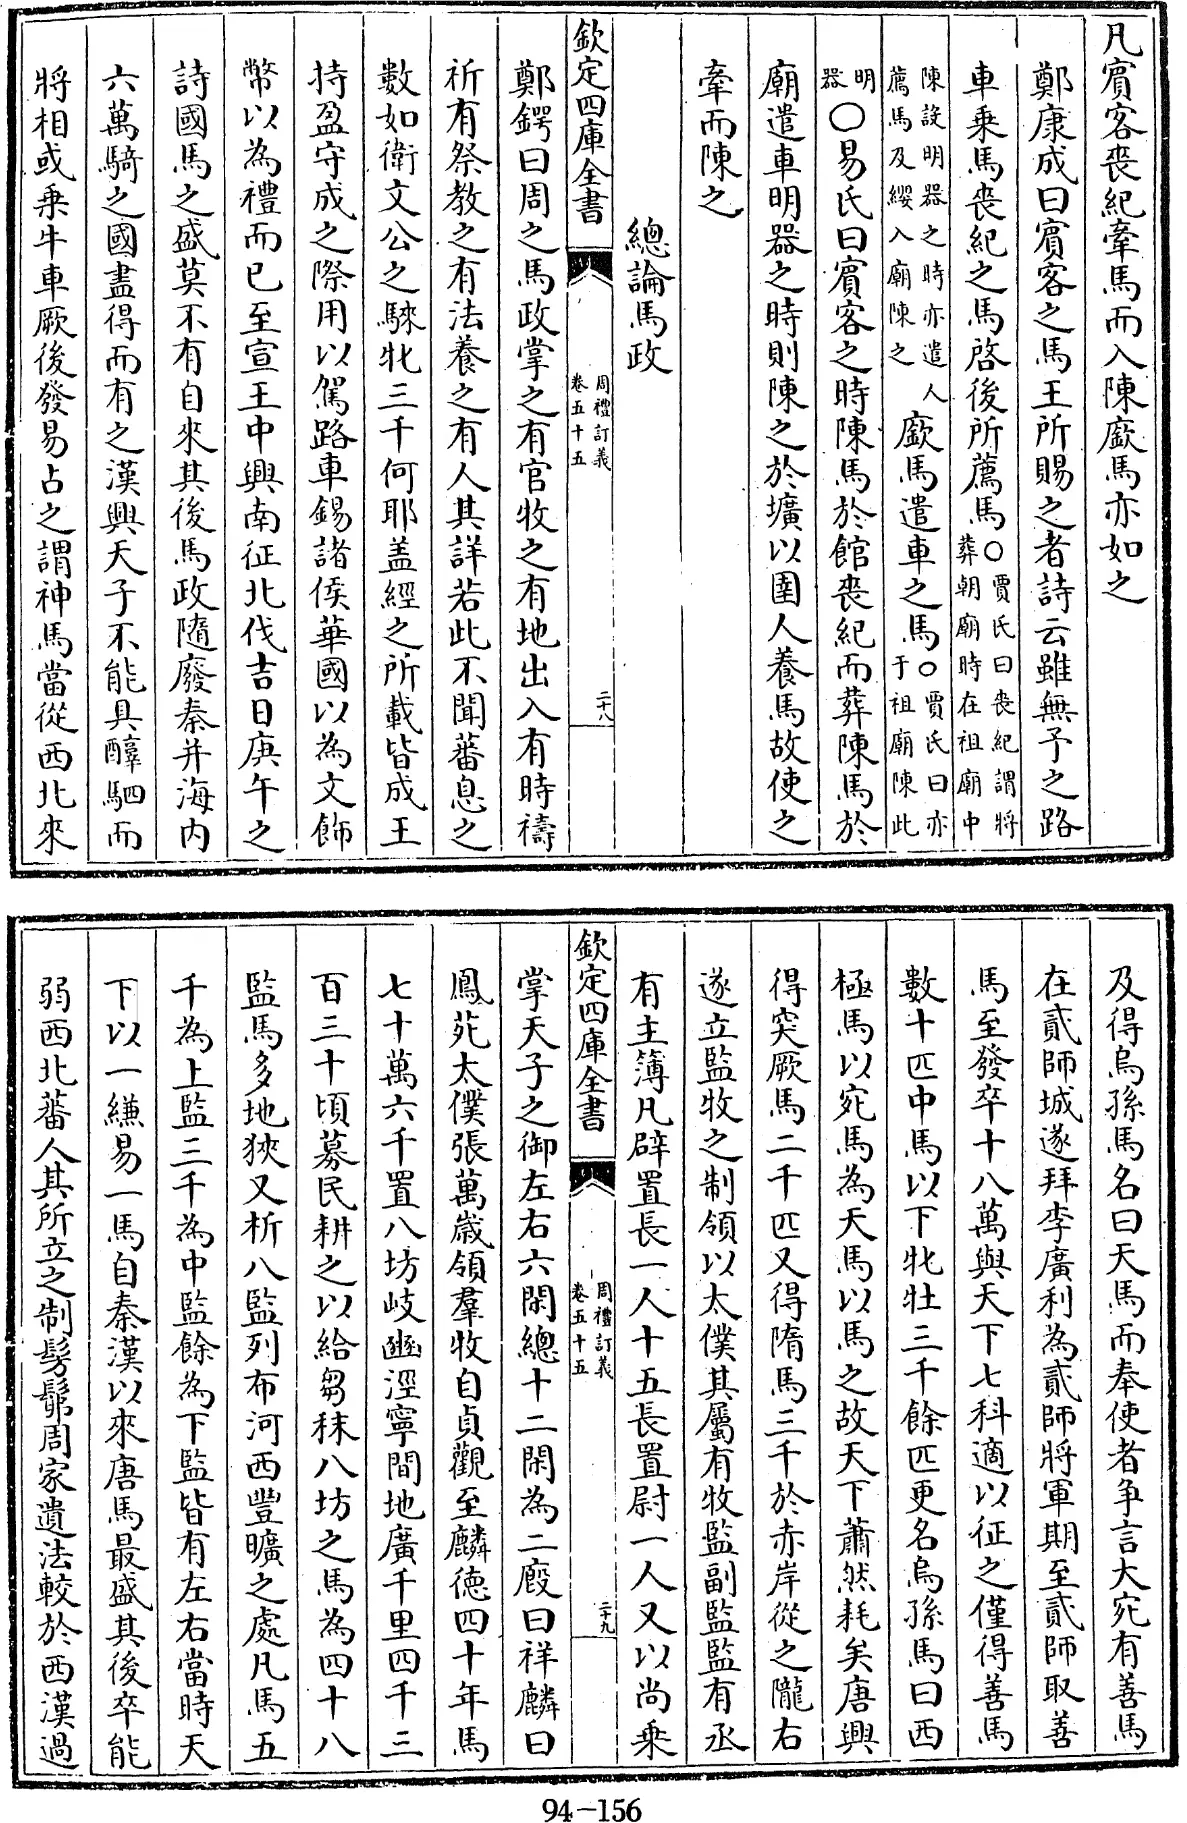 凡賔客喪紀牽馬而入陳廞馬亦如之
鄭康成曰賔客之馬王所賜之者詩云雖無予之路
車乗馬喪紀之馬啓後所薦馬○賈氏曰喪紀謂將葬朝廟時在祖廟中
陳設明器之時亦遣人薦馬及纓入廟陳之廞馬遣車之馬○賈氏曰亦于祖廟陳此
明器○易氏曰賔客之時陳馬於館喪紀而葬陳馬於
廟遣車明器之時則陳之於壙以圉人養馬故使之
牽而陳之
總論馬政
欽定四庫全書
周禮訂義
卷五十五
二十八
鄭鍔曰周之馬政掌之有官牧之有地出入有時禱
祈有祭教之有法養之有人其詳若此不聞蕃息之
數如衛文公之騋牝三千何耶盖經之所載皆成王
持盈守成之際用以駕路車錫諸侯華國以為文飾
幣以為禮而已至宣王中興南征北伐吉日庚午之
詩國馬之盛莫不有自來其後馬政隨廢秦并海内
六萬騎之國盡得而有之漢興天子不能具醇駟而
將相或乗牛車厥後發易占之謂神馬當從西北來
及得烏孫馬名曰天馬而奉使者争言大宛有善馬
在貳師城遂拜李廣利為貳師將軍期至貳師取善
馬至發卒十八萬與天下七科適以征之僅得善馬
數十匹中馬以下牝牡三千餘匹更名烏孫馬曰西
極馬以宛馬為天馬以馬之故天下蕭然耗矣唐興
得突厥馬二千匹又得隋馬三千於赤岸從之隴右
遂立監牧之制領以太僕其屬有牧監副監監有丞
有主簿凡辟置長一人十五長置尉一人又以尚乗
欽定四庫全書
周禮訂義
卷五十五
二十九
掌天子之御左右六閑總十二閑為二廏曰祥麟曰
鳳苑太僕張萬嵗領羣牧自貞觀至麟徳四十年馬
七十萬六千置八坊岐豳涇寧間地廣千里四千三
百三十頃募民耕之以給芻秣八坊之馬為四十八
監馬多地狹又析八監列布河西豐曠之處凡馬五
千為上監三千為中監餘為下監皆有左右當時天
下以一縑易一馬自秦漢以來唐馬最盛其後卒能
弱西北蕃人其所立之制髣髴周家遺法較於西漢過
94-156